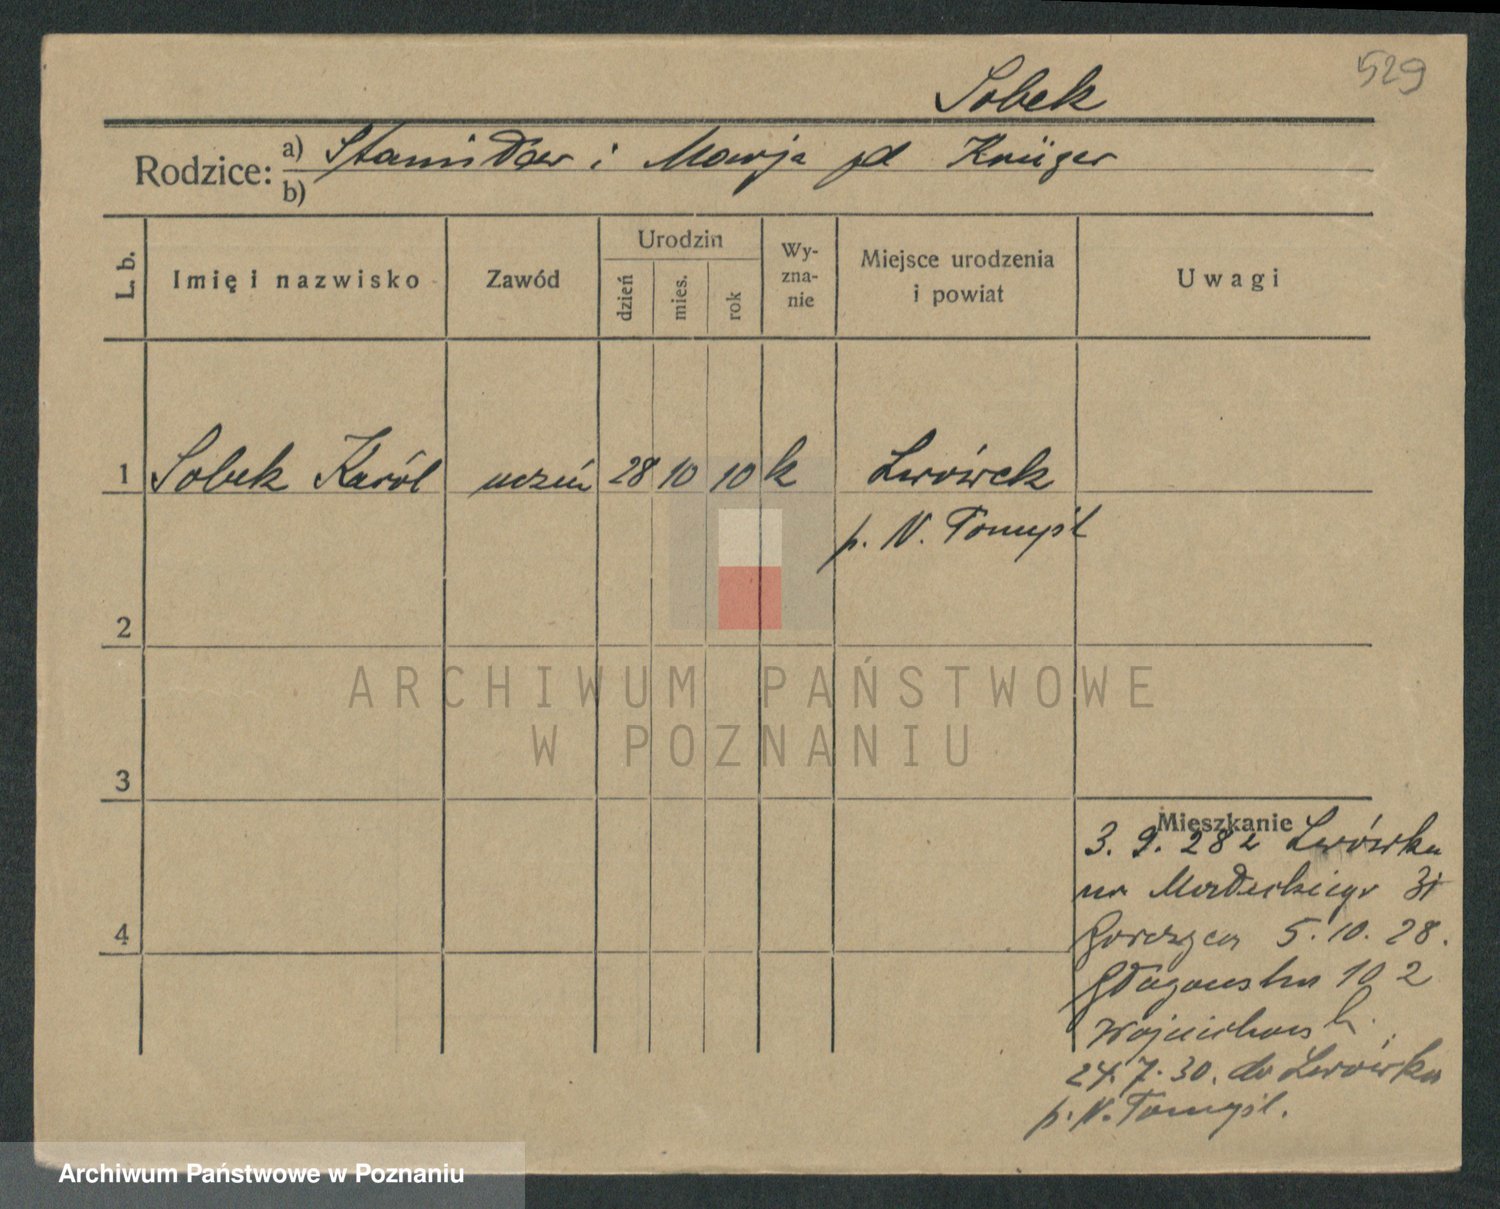 529
Sobek
Rodzice: a) Stanisław i Marja zd Krüger
b)
L. b.
Imię i nazwisko
Zawód
Urodzin
dzień
mies.
rok
Wy-
zna-
nie
Miejsce urodzenia
i powiat
Uwagi
1 Sobek Karól uczeń 28 10 10 k Lwówek
p. N. Tomyśl
2
3
4
Mieszkanie
3. 9. 28 z Lwówka
na Madeckiego
5. 10. 28.
Głogowska 102
Wojciechowski
24. 7. 30. do Lwówka
p. N. Tomyśl.
ARCHIWUM PAŃSTWOWE
W POZNANIU
Archiwum Państwowe w Poznaniu